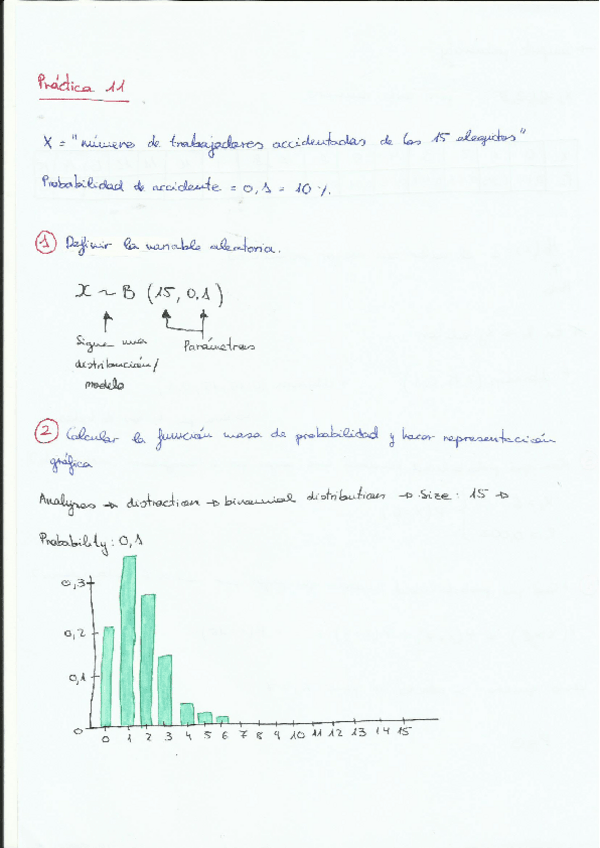 Práctica 11
X = "número de trabajadores accidentados de los 15 elegidos"
Probabilidad de accidente = 0,1 = 10 %.
1 Definir la variable aleatoria.
X ~ B (15, 0,1)
Sigue una
distribución/
modelo
Parámetros
2 Calcular la función masa de probabilidad y hacer representación
gráfica
Analyses → distraction → binomial distribution → Size: 15 →
Probability: 0,1
0,3
0,2
0,1
0
0 1 2 3 4 5 6 7 8 9 10 11 12 13 14 15